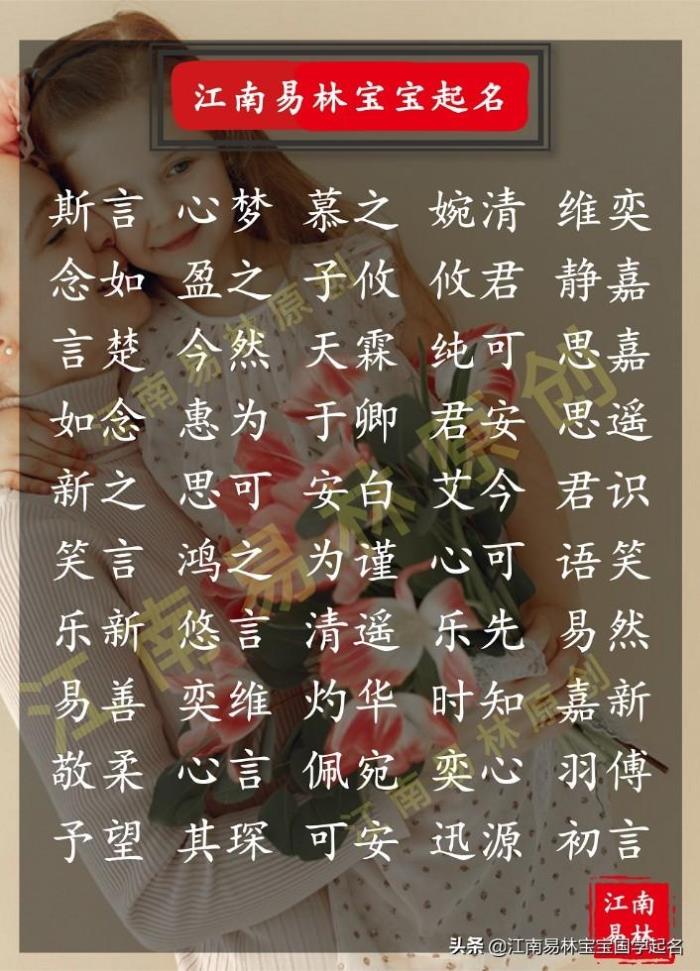 江南易林宝宝起名
斯言 心梦 慕之 婉清 维奕
念如 盈之 子攸 攸君 静嘉
言楚 今然 天霖 纯可 思嘉
如念 惠为 于卿 君安 思遥
新之 思可 安白 艾今 君识
笑言 鸿之 为谨 心可 语笑
乐新 悠言 清遥 乐先 易然
易善 奕维 灼华 时知 嘉新
敬柔 心言 佩宛 奕心 羽傅
予望 其琛 可安 迅源 初言
江南易林原创
江南易林原创
江南易林原创
江南
易林
头条 @江南易林宝宝国学起名